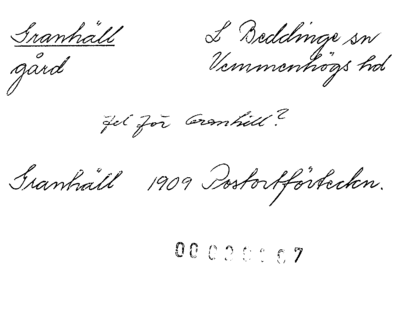 Granhäll
L Beddinge sn
gård
Vemmenhögs hd
Fel för Cranhill?
Granhäll 1909 Postortförteckn.